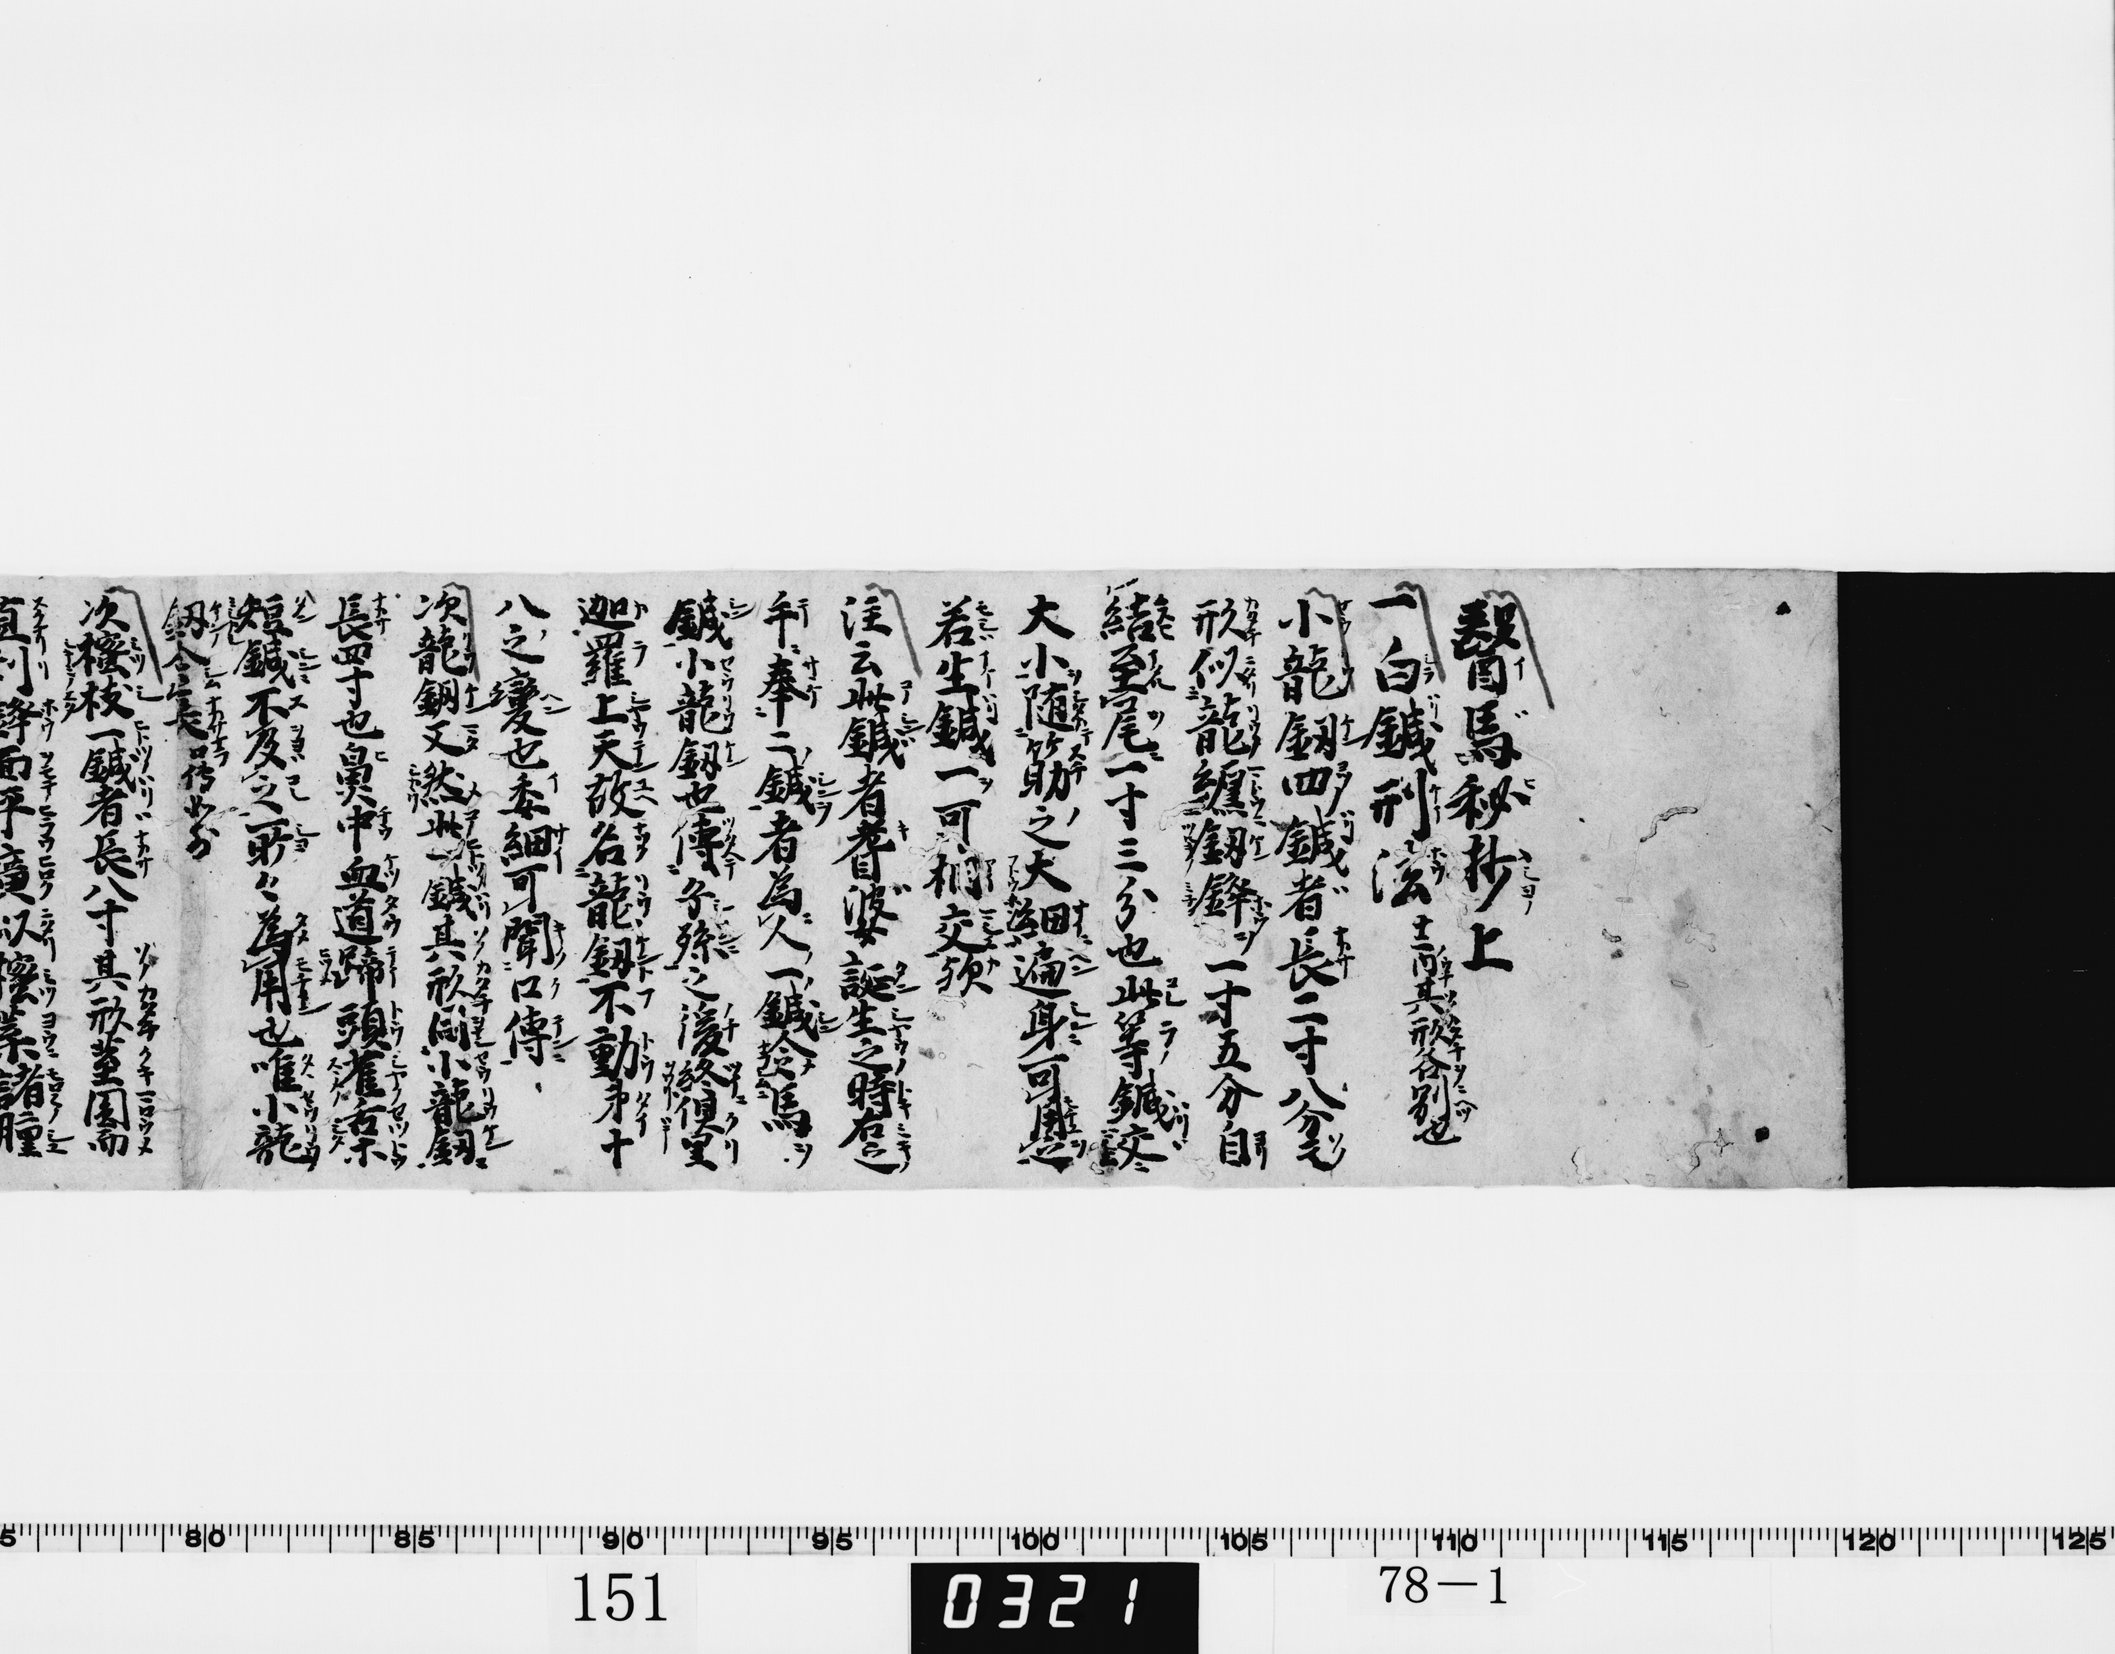 醫馬秘抄上
一白鍼刑法 其形各別也
小龍釼四鍼者長二寸八分也
形似龍纏釼鋒一寸五分自
結至尾一寸三分也此等鍼交
大小随筋之大細遍身可用
若生鍼一可相交須
注云此鍼者耆婆誕生之時右之
手奉二鍼者為人一鍼馬
鍼小龍釼也傳子孫之後終倶里
迦羅上天故名龍釼不動第十
八之變也委細可聞口傳
次龍釼又然此一鍼其形同小龍釼
長四寸也鼻中血道蹄頭雀舌
短鍼不及之所々為用也唯小龍
釼合長
次樒枝一鍼者長八寸其形茎圓而
直利鋒而平廣以樒葉諸腫
75 80 85 90 95 100 105 110 115 120 125
151
0321
78-1